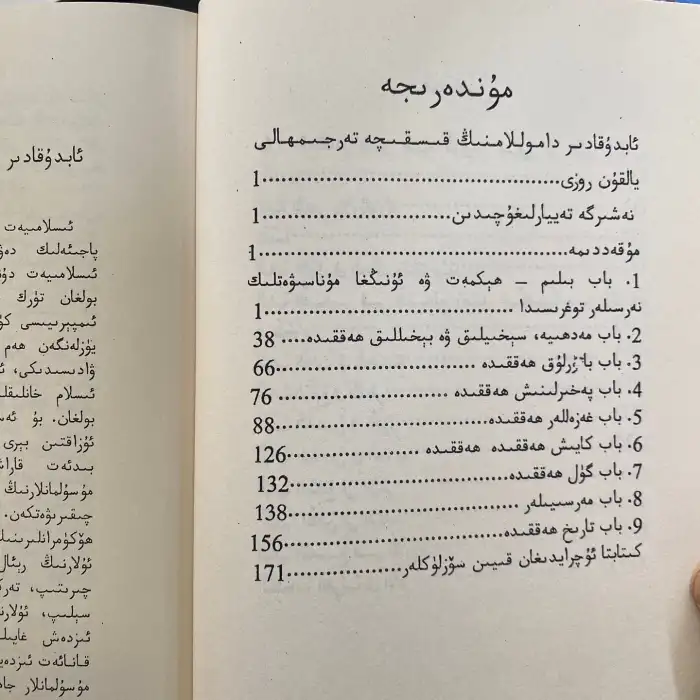 مۇندەرىجە
ئابدۇقادىر داموللامنىڭ قىسقىچە تەرجىمھالى
يالقۇن روزى....................................1
نەشرگە تەييارلىغۇچىدىن....................1
مۇقەددىمە....................................1
1. باب بىلىم – ھېكمەت ۋە ئۇنىڭغا مۇناسىۋەتلىك
نەرسىلەر توغرىسىدا........................1
2. باب مەدھىيە، سېخىيلىق ۋە بېخىللىق ھەققىدە....38
3. باب باتۇرلۇق ھەققىدە....................66
4. باب پەخىرلىنىش ھەققىدە................76
5. باب غەزەللەر ھەققىدە....................88
6. باب كايىش ھەققىدە ھەققىدە................126
7. باب گۈل ھەققىدە....................132
8. باب مەرسىيىلەر....................138
9. باب تارىخ ھەققىدە....................156
كىتابتا ئۇچرايدىغان قىيىن سۆزلۈكلەر................171
ئابدۇقادىر
ئىسلامىيەت
پاجىئەلىك
ئىسلامىيەت
بولغان تۈرك
ئىمپېرىيىسى
يۈزلەنگەن ھەم
ۋادىسىدىكى،
ئىسلام
بولغان. بۇ
ئۇزاقتىن بېرى
بىدئەت
مۇسۇلمانلارنىڭ
چىقىرىۋەتكەن.
ھۆكۈمرانلىرىنىڭ
ئۇلارنىڭ
چىرىتىپ،
سېلىپ،
ئىزدەش
قانائەت
مۇسۇلمانلار